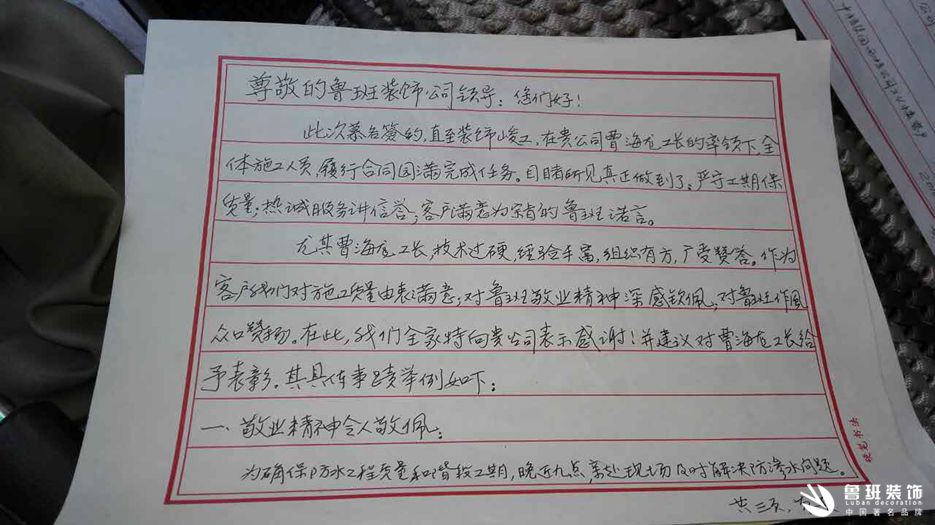 尊敬的鲁班装饰公司领导：您们好！
此次慕名签约，直至装饰峻工，在贵公司曹海龙工长的率领下，全
体施工人员，履行合同圆满完成任务。目睹所见真正做到了，严守工期保
质量；热诚服务讲信誉；客户满意为宗旨的鲁班诺言。
尤其曹海龙工长，技术过硬，经验丰富，组织有方，广受赞誉。作为
客户我们对施工质量由衷满意；对鲁班敬业精神深感钦佩，对鲁班作风
众口赞扬。在此，我们全家特向贵公司表示感谢！并建议对曹海龙工长给
予表彰。其具体事迹举例如下：
一、敬业精神令人敬佩：
为确保防水工程质量和工期，晚近九点，亲赴现场及时解决防渗水问题。
硬笔书法
共三页，
鲁班装饰
Luban decoration
中国著名品牌